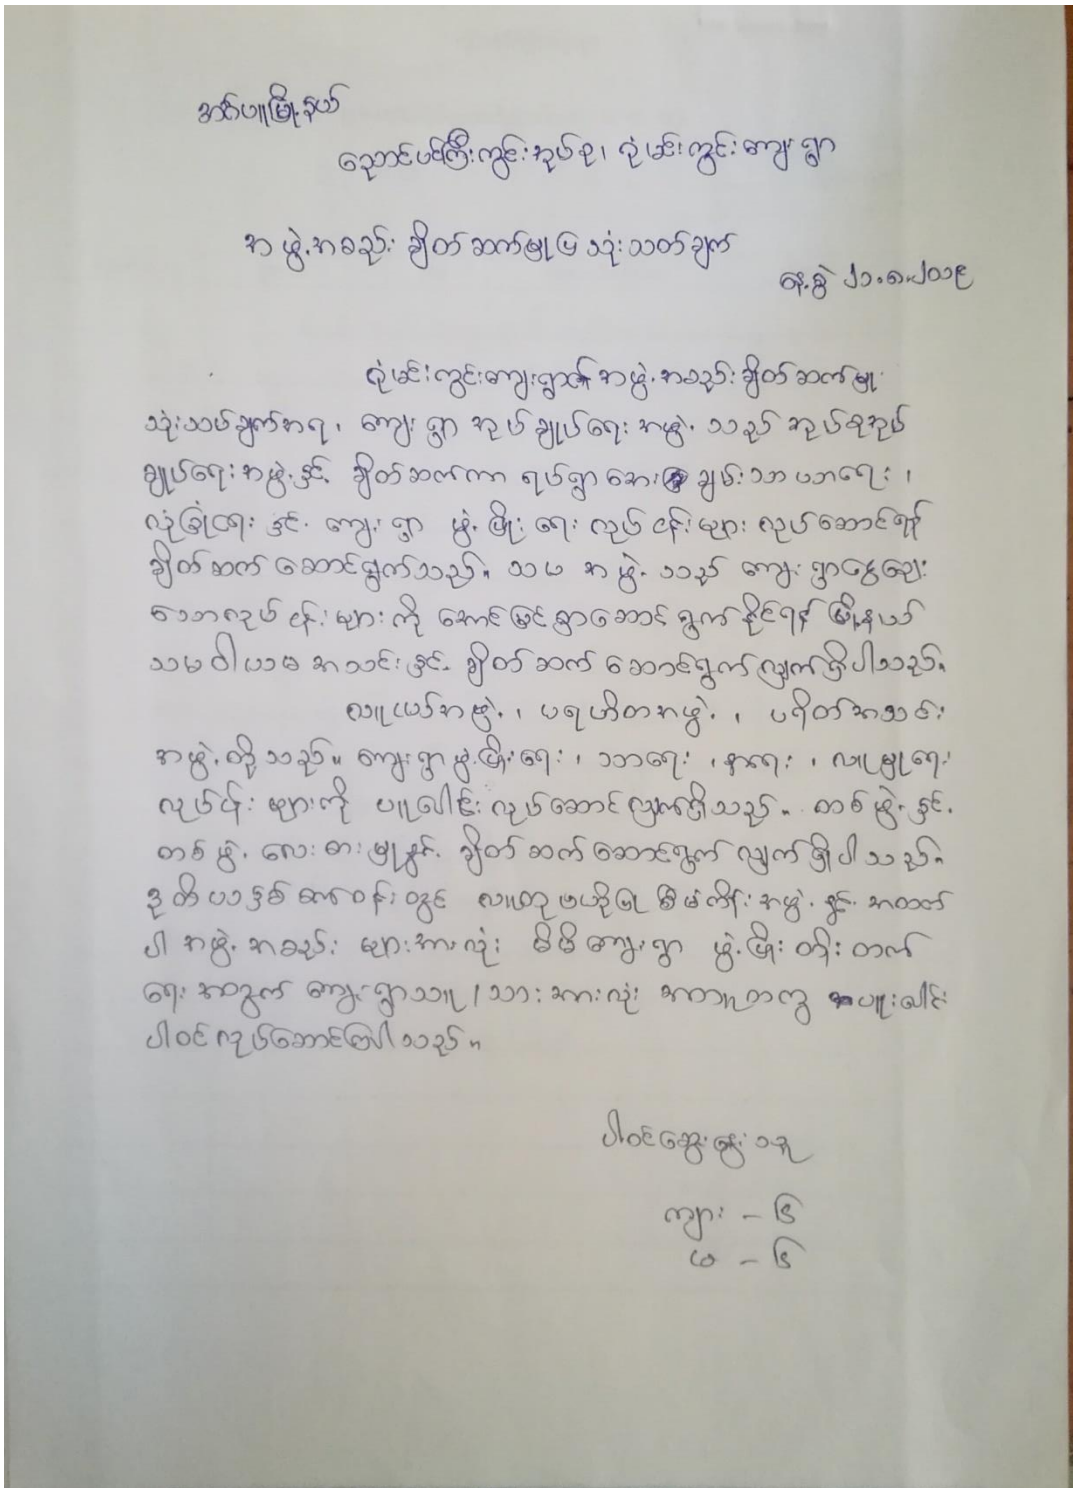 အင်္ဂပူမြို့နယ်
ညောင်ပင်ကြီးကွင်းအုပ်စု၊ ဂုံမင်းကွင်းကျေးရွာ
အဖွဲ့အစည်း ချိတ်ဆက်မှုပြ သုံးသတ်ချက်
နေ့စွဲ ၂၁.၈.၂၀၁၉
ဂုံမင်းကွင်းကျေးရွာ၏ အဖွဲ့အစည်းချိတ်ဆက်မှု
သုံးသပ်ချက်အရ၊ ကျေးရွာ အုပ်ချုပ်ရေး အဖွဲ့ သည် အုပ်စုအုပ်
ချုပ်ရေး အဖွဲ့နှင့် ချိတ်ဆက်ကာ ရပ်ရွာအေး ချမ်းသာယာရေး ၊
လုံခြုံရေး နှင့် ကျေးရွာ ဖွံ့ဖြိုးရေး လုပ်ငန်းများ လုပ်ဆောင်ရန်
ချိတ်ဆက် ဆောင်ရွက်သည်။ သမ အဖွဲ့ သည် ကျေးရွာငွေချေး
သောလုပ်ငန်းများကို အောင်မြင်စွာဆောင်ရွက်နိုင်ရန် မြို့နယ်
သမဝါယမ အသင်းနှင့် ချိတ်ဆက် ဆောင်ရွက်လျှက်ရှိပါသည်။
လူငယ်အဖွဲ့၊ ပရဟိတအဖွဲ့၊ ပရိတ်အသင်း
အဖွဲ့တို့သည်။ ကျေးရွာဖွံ့ဖြိုးရေး၊ သာရေး၊ နာရေး၊ လူမှုရေး
လုပ်ငန်းများကို ပူးပေါင်း လုပ်ဆောင်လျှက်ရှိသည်။ တစ်ဖွဲ့နှင့်
တစ်ဖွဲ့ လေးစားမှုနှင့် ချိတ်ဆက်ဆောင်ရွက် လျှက်ရှိပါသည်။
ဒုတိယနှစ် စက်ဝန်းတွင် လူထုဗဟိုပြု စီမံကိန်းအဖွဲ့နှင့် အထက်
ပါ အဖွဲ့အစည်းများအားလုံး မိမိကျေးရွာ ဖွံ့ဖြိုး တိုးတက်
ရေး အတွက် ကျေးရွာသူ/သား အားလုံး အတူတကွ ပူးပေါင်း
ပါဝင်လုပ်ဆောင်ကြပါသည်။
ပါဝင်ဆွေးနွေးသူ
ကျား - ၆
မ - ၆